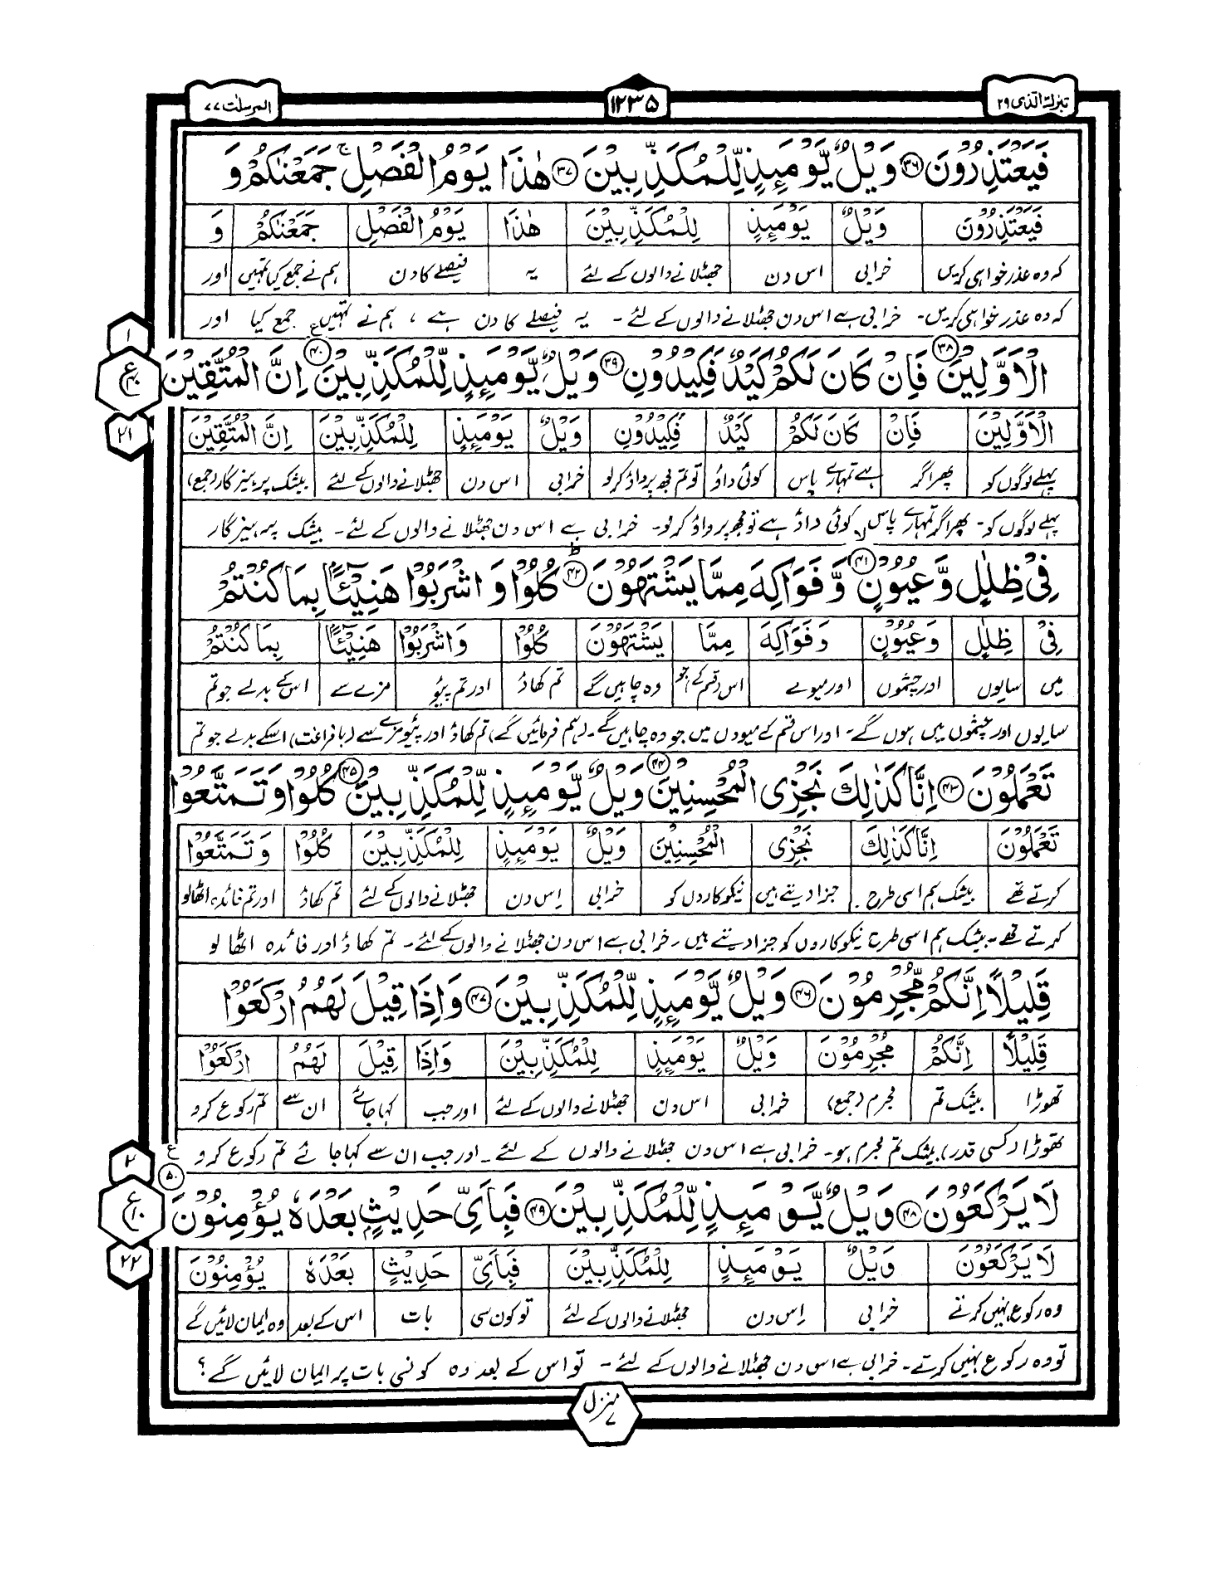 تبٰرک الذی ۲۹
۱۲۳۵
المرسلٰت ۷۷
فَيَعْتَذِرُوْنَ ﴿۳۶﴾ وَيْلٌ يَّوْمَىِٕذٍ لِّلْمُكَذِّبِيْنَ ﴿۳۷﴾ هٰذَا يَوْمُ الْفَصْلِ ۚ جَمَعْنٰكُمْ وَ
فَيَعْتَذِرُوْنَ وَيْلٌ يَّوْمَىِٕذٍ لِّلْمُكَذِّبِيْنَ هٰذَا يَوْمُ الْفَصْلِ جَمَعْنٰكُمْ وَ
کہ وہ عذر خواہی کریں خرابی اس دن جھٹلانے والوں کے لئے یہ فیصلے کا دن ہم نے جمع کیا تمہیں اور
کہ وہ عذر خواہی کریں۔ خرابی ہے اس دن جھٹلانے والوں کے لئے۔ یہ فیصلے کا دن ہے، ہم نے تمہیں جمع کیا اور
الْاَوَّلِيْنَ ﴿۳۸﴾ فَاِنْ كَانَ لَكُمْ كَيْدٌ فَكِيْدُوْنِ ﴿۳۹﴾ وَيْلٌ يَّوْمَىِٕذٍ لِّلْمُكَذِّبِيْنَ ﴿۴۰﴾ اِنَّ الْمُتَّقِيْنَ
۱
ع
۴۰
۲۱
الْاَوَّلِيْنَ فَاِنْ كَانَ لَكُمْ كَيْدٌ فَكِيْدُوْنِ وَيْلٌ يَّوْمَىِٕذٍ لِّلْمُكَذِّبِيْنَ اِنَّ الْمُتَّقِيْنَ
پہلے لوگوں کو پھر اگر ہے تمہارے پاس کوئی داؤ تو تم مجھ پر داؤ کرلو خرابی اس دن جھٹلانے والوں کے لئے بیشک پرہیزگار (جمع)
پہلے لوگوں کو۔ پھر اگر تمہارے پاس کوئی داؤ ہے تو مجھ پر داؤ کرلو۔ خرابی ہے اس دن جھٹلانے والوں کے لئے۔ بیشک پرہیزگار
فِيْ ظِلٰلٍ وَّعُيُوْنٍ ﴿۴۱﴾ وَّ فَوَاكِهَ مِمَّا يَشْتَهُوْنَ ﴿۴۲﴾ ؕ كُلُوْا وَ اشْرَبُوْا هَنِيْٓــًٔۢا بِمَا كُنْتُمْ
فِيْ ظِلٰلٍ وَّعُيُوْنٍ وَّفَوَاكِهَ مِمَّا يَشْتَهُوْنَ كُلُوْا وَاشْرَبُوْا هَنِيْٓــًٔۢا بِمَا كُنْتُمْ
میں سایوں اور چشموں اور میوے اس قسم کے جو وہ چاہیں گے تم کھاؤ اور تم پیو مزے سے اس کے بدلے جو تم
سایوں اور چشموں میں ہوں گے۔ اور اس قسم کے میووں میں جو وہ چاہیں گے۔ (ہم فرمائیں گے) تم کھاؤ اور پیو مزے سے (بافراغت) اسکے بدلے جو تم
تَعْمَلُوْنَ ﴿۴۳﴾ اِنَّا كَذٰلِكَ نَجْزِى الْمُحْسِنِيْنَ ﴿۴۴﴾ وَيْلٌ يَّوْمَىِٕذٍ لِّلْمُكَذِّبِيْنَ ﴿۴۵﴾ كُلُوْا وَ تَمَتَّعُوْا
تَعْمَلُوْنَ اِنَّا كَذٰلِكَ نَجْزِى الْمُحْسِنِيْنَ وَيْلٌ يَّوْمَىِٕذٍ لِّلْمُكَذِّبِيْنَ كُلُوْا وَ تَمَتَّعُوْا
کرتے تھے بیشک ہم اسی طرح جزا دیتے ہیں نیکوکاروں کو خرابی اس دن جھٹلانے والوں کے لئے تم کھاؤ اور تم فائدہ اٹھالو
کرتے تھے۔ بیشک ہم اسی طرح نیکوکاروں کو جزا دیتے ہیں۔ خرابی ہے اس دن جھٹلانے والوں کے لئے۔ تم کھاؤ اور فائدہ اٹھا لو
قَلِيْلًا اِنَّكُمْ مُّجْرِمُوْنَ ﴿۴۶﴾ وَيْلٌ يَّوْمَىِٕذٍ لِّلْمُكَذِّبِيْنَ ﴿۴۷﴾ وَاِذَا قِيْلَ لَهُمُ ارْكَعُوْا
قَلِيْلًا اِنَّكُمْ مُّجْرِمُوْنَ وَيْلٌ يَّوْمَىِٕذٍ لِّلْمُكَذِّبِيْنَ وَاِذَا قِيْلَ لَهُمُ ارْكَعُوْا
تھوڑا بیشک تم مجرم (جمع) خرابی اس دن جھٹلانے والوں کے لئے اور جب کہا جائے ان سے تم رکوع کرو
تھوڑا (کسی قدر) بیشک تم مجرم ہو۔ خرابی ہے اس دن جھٹلانے والوں کے لئے۔ اور جب ان سے کہا جائے تم رکوع کرو
لَا يَرْكَعُوْنَ ﴿۴۸﴾ وَيْلٌ يَّوْمَىِٕذٍ لِّلْمُكَذِّبِيْنَ ﴿۴۹﴾ فَبِاَيِّ حَدِيْثٍۭ بَعْدَهٗ يُؤْمِنُوْنَ ﴿۵۰﴾ ع
۲
ع
۱۰
۲۲
لَا يَرْكَعُوْنَ وَيْلٌ يَّوْمَىِٕذٍ لِّلْمُكَذِّبِيْنَ فَبِاَيِّ حَدِيْثٍۭ بَعْدَهٗ يُؤْمِنُوْنَ
وہ رکوع نہیں کرتے خرابی اس دن جھٹلانے والوں کے لئے تو کون سی بات اس کے بعد وہ ایمان لائیں گے
تو وہ رکوع نہیں کرتے۔ خرابی ہے اس دن جھٹلانے والوں کے لئے۔ تو اس کے بعد وہ کونسی بات پر ایمان لائیں گے؟
منزل ۷